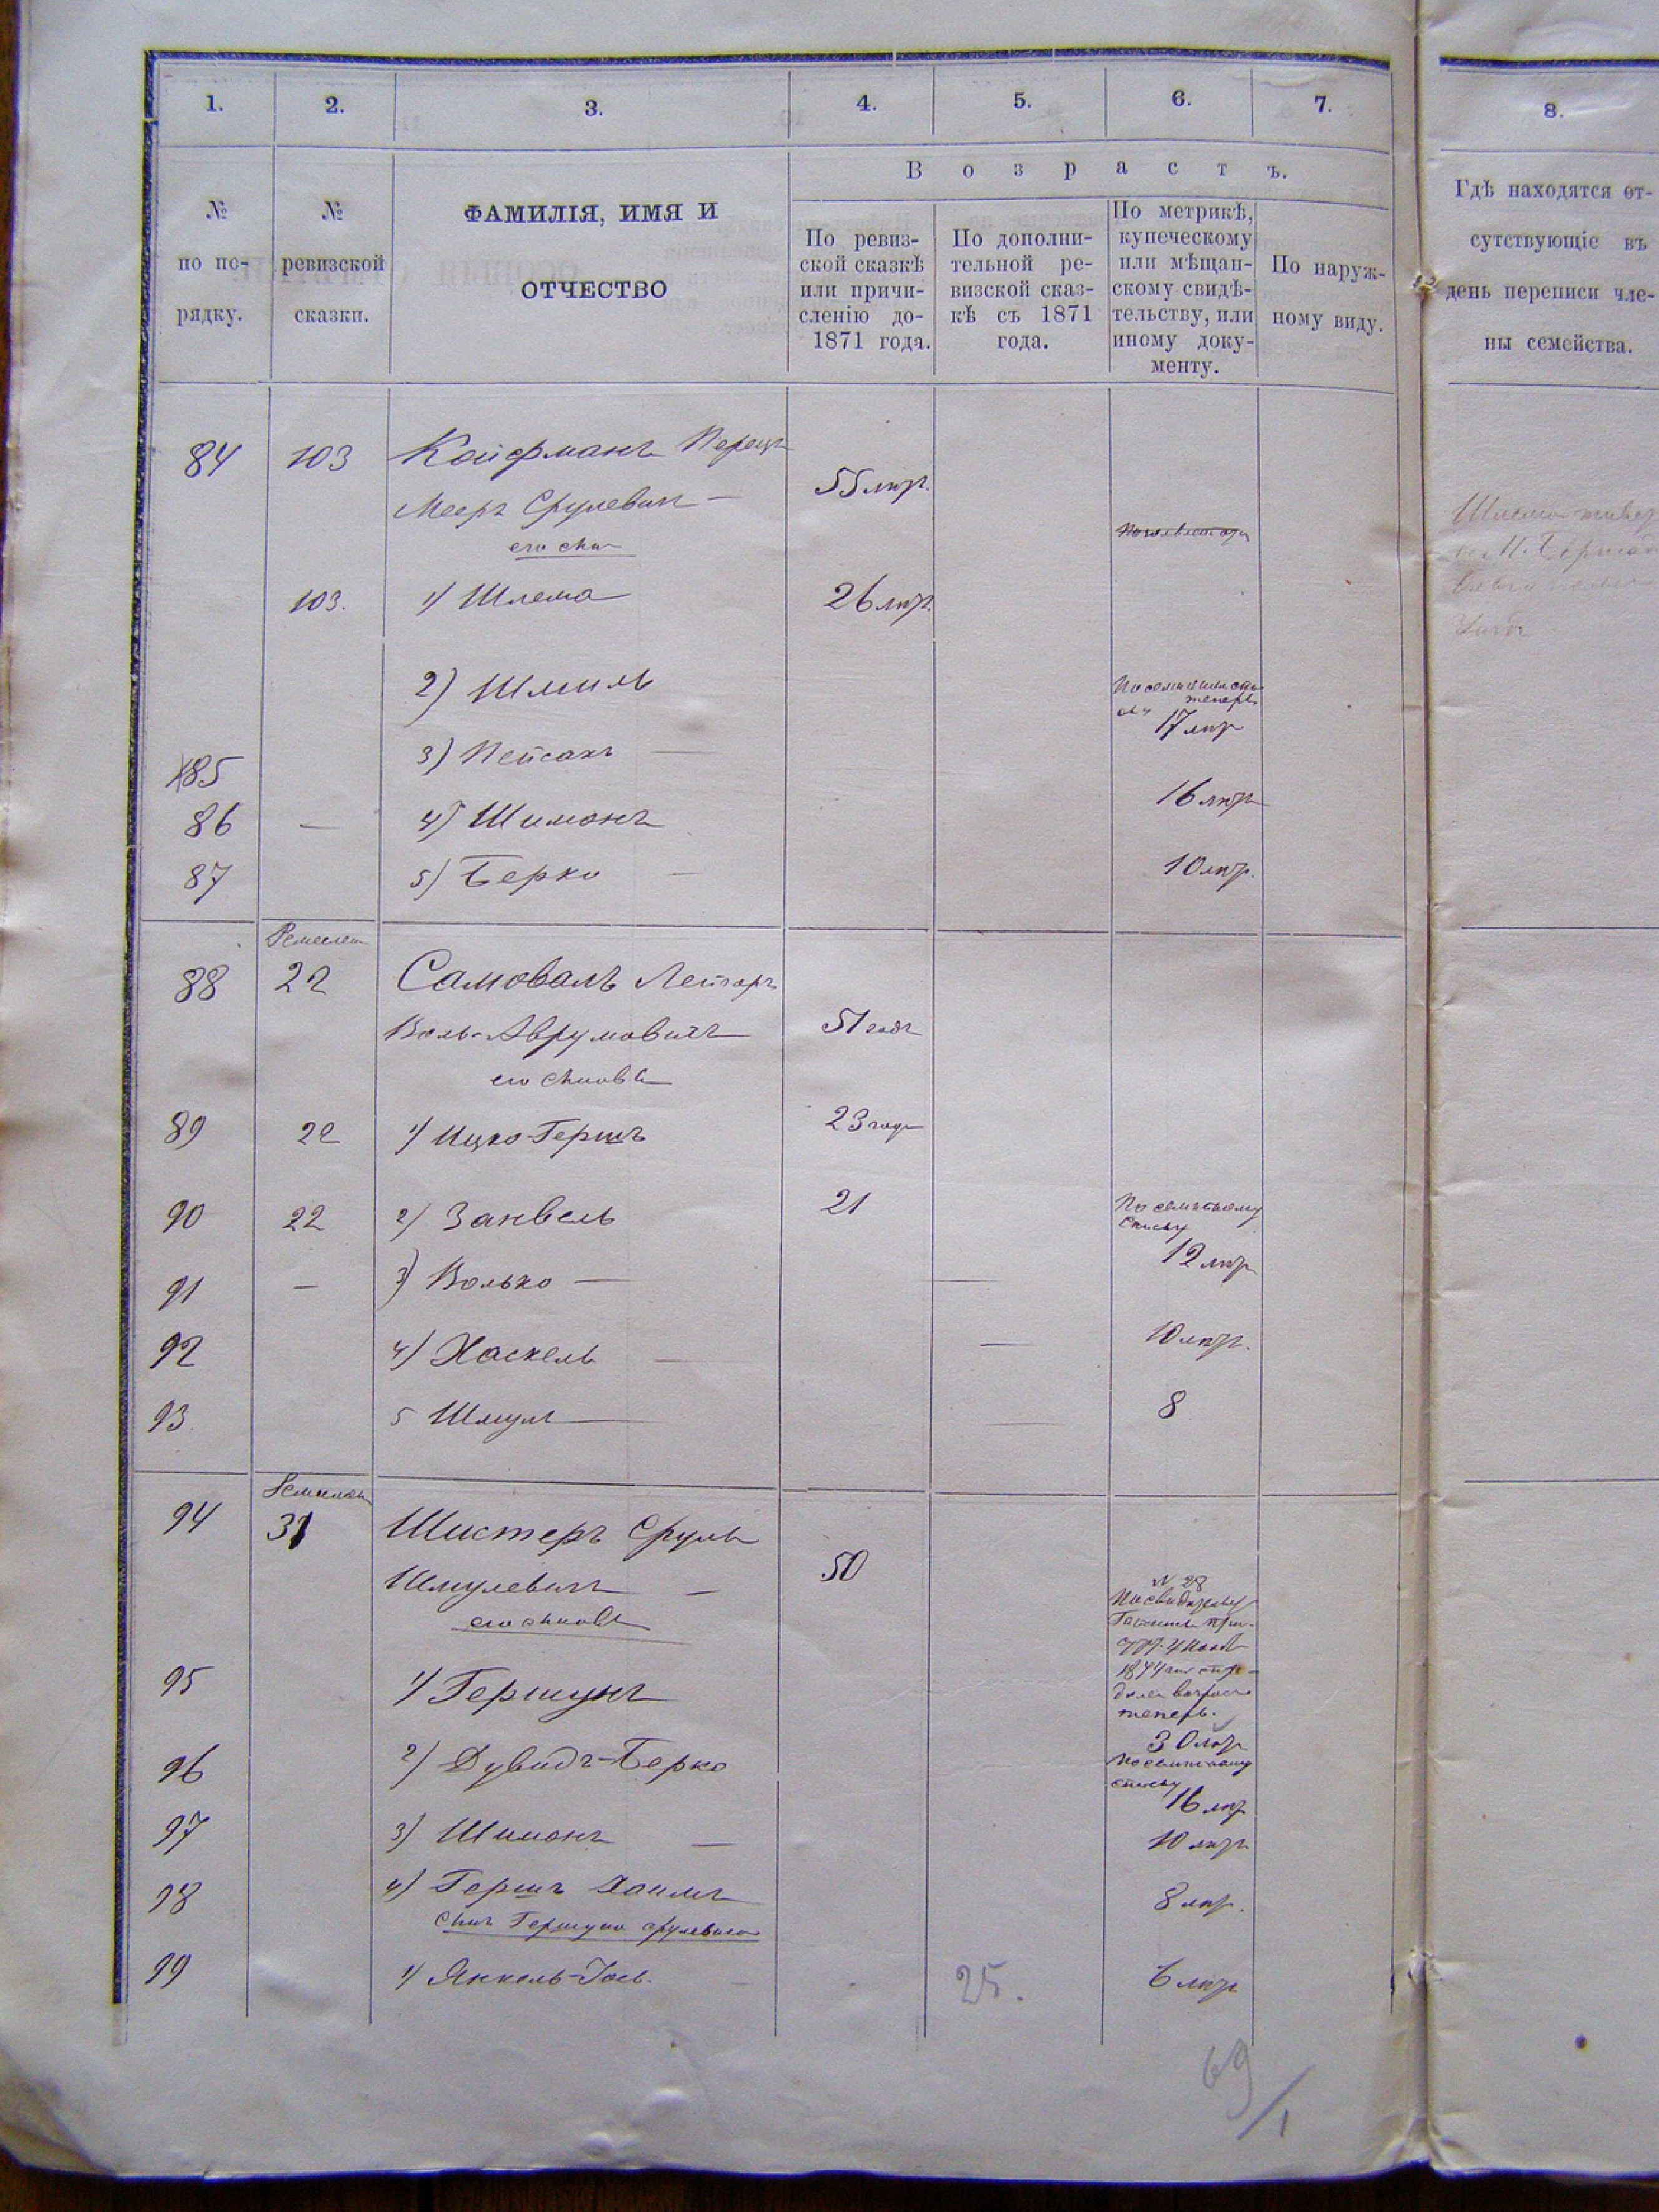 1. 2. 3. 4. 5. 6. 7. 8.
Возрастъ.
№ по по-рядку.
№ ревизской сказки.
ФАМИЛІЯ, ИМЯ И
ОТЧЕСТВО
По ревиз-
ской сказкѣ
или причи-
сленію до-
1871 года.
По дополни-
тельной ре-
визской сказ-
кѣ съ 1871
года.
По метрикѣ,
купеческому
или мѣщан-
скому свидѣ-
тельству, или
иному доку-
менту.
По наруж-
ному виду.
Гдѣ находятся от-
сутствующіе въ
день переписи чле-
ны семейства.
84 103 Койфманъ Перецъ
Мееръ Срулевичъ — 55 лѣтъ.
его сын
103. 1) Шлема 26 лѣтъ.
2) Шмиль
теперь
17 лѣтъ
85 3) Пейсахъ —
16 лѣтъ
86 — 4) Шимонъ
87 5) Берко — 10 лѣтъ.
Ремеслен
88 22 Самоваль Лейзоръ
Воль-Аврумовичъ 51 годъ
его сыновья
89 22 1) Ицко-Гершъ 23 года
90 22 2) Занвель 21 По семейному
списку
12 лѣтъ
91 — 3) Волько — —
92 4) Хаскель — — 10 лѣтъ.
93 5 Шмуль — — 8
94 31 Шистеръ Сруль
Шмулевичъ — 50
его сыновья
№ 28
теперь.
95 1) Гершунъ
30 лѣтъ
96 2) Дувидъ-Берко По семейному
списку
16 лѣтъ
97 3) Шимонъ — 10 лѣтъ
98 4) Гершъ Хаимъ 8 лѣтъ.
сынъ Гершуна Срулевича
99 1) Янкель-Іось. — 6 лѣтъ
25.
69/1